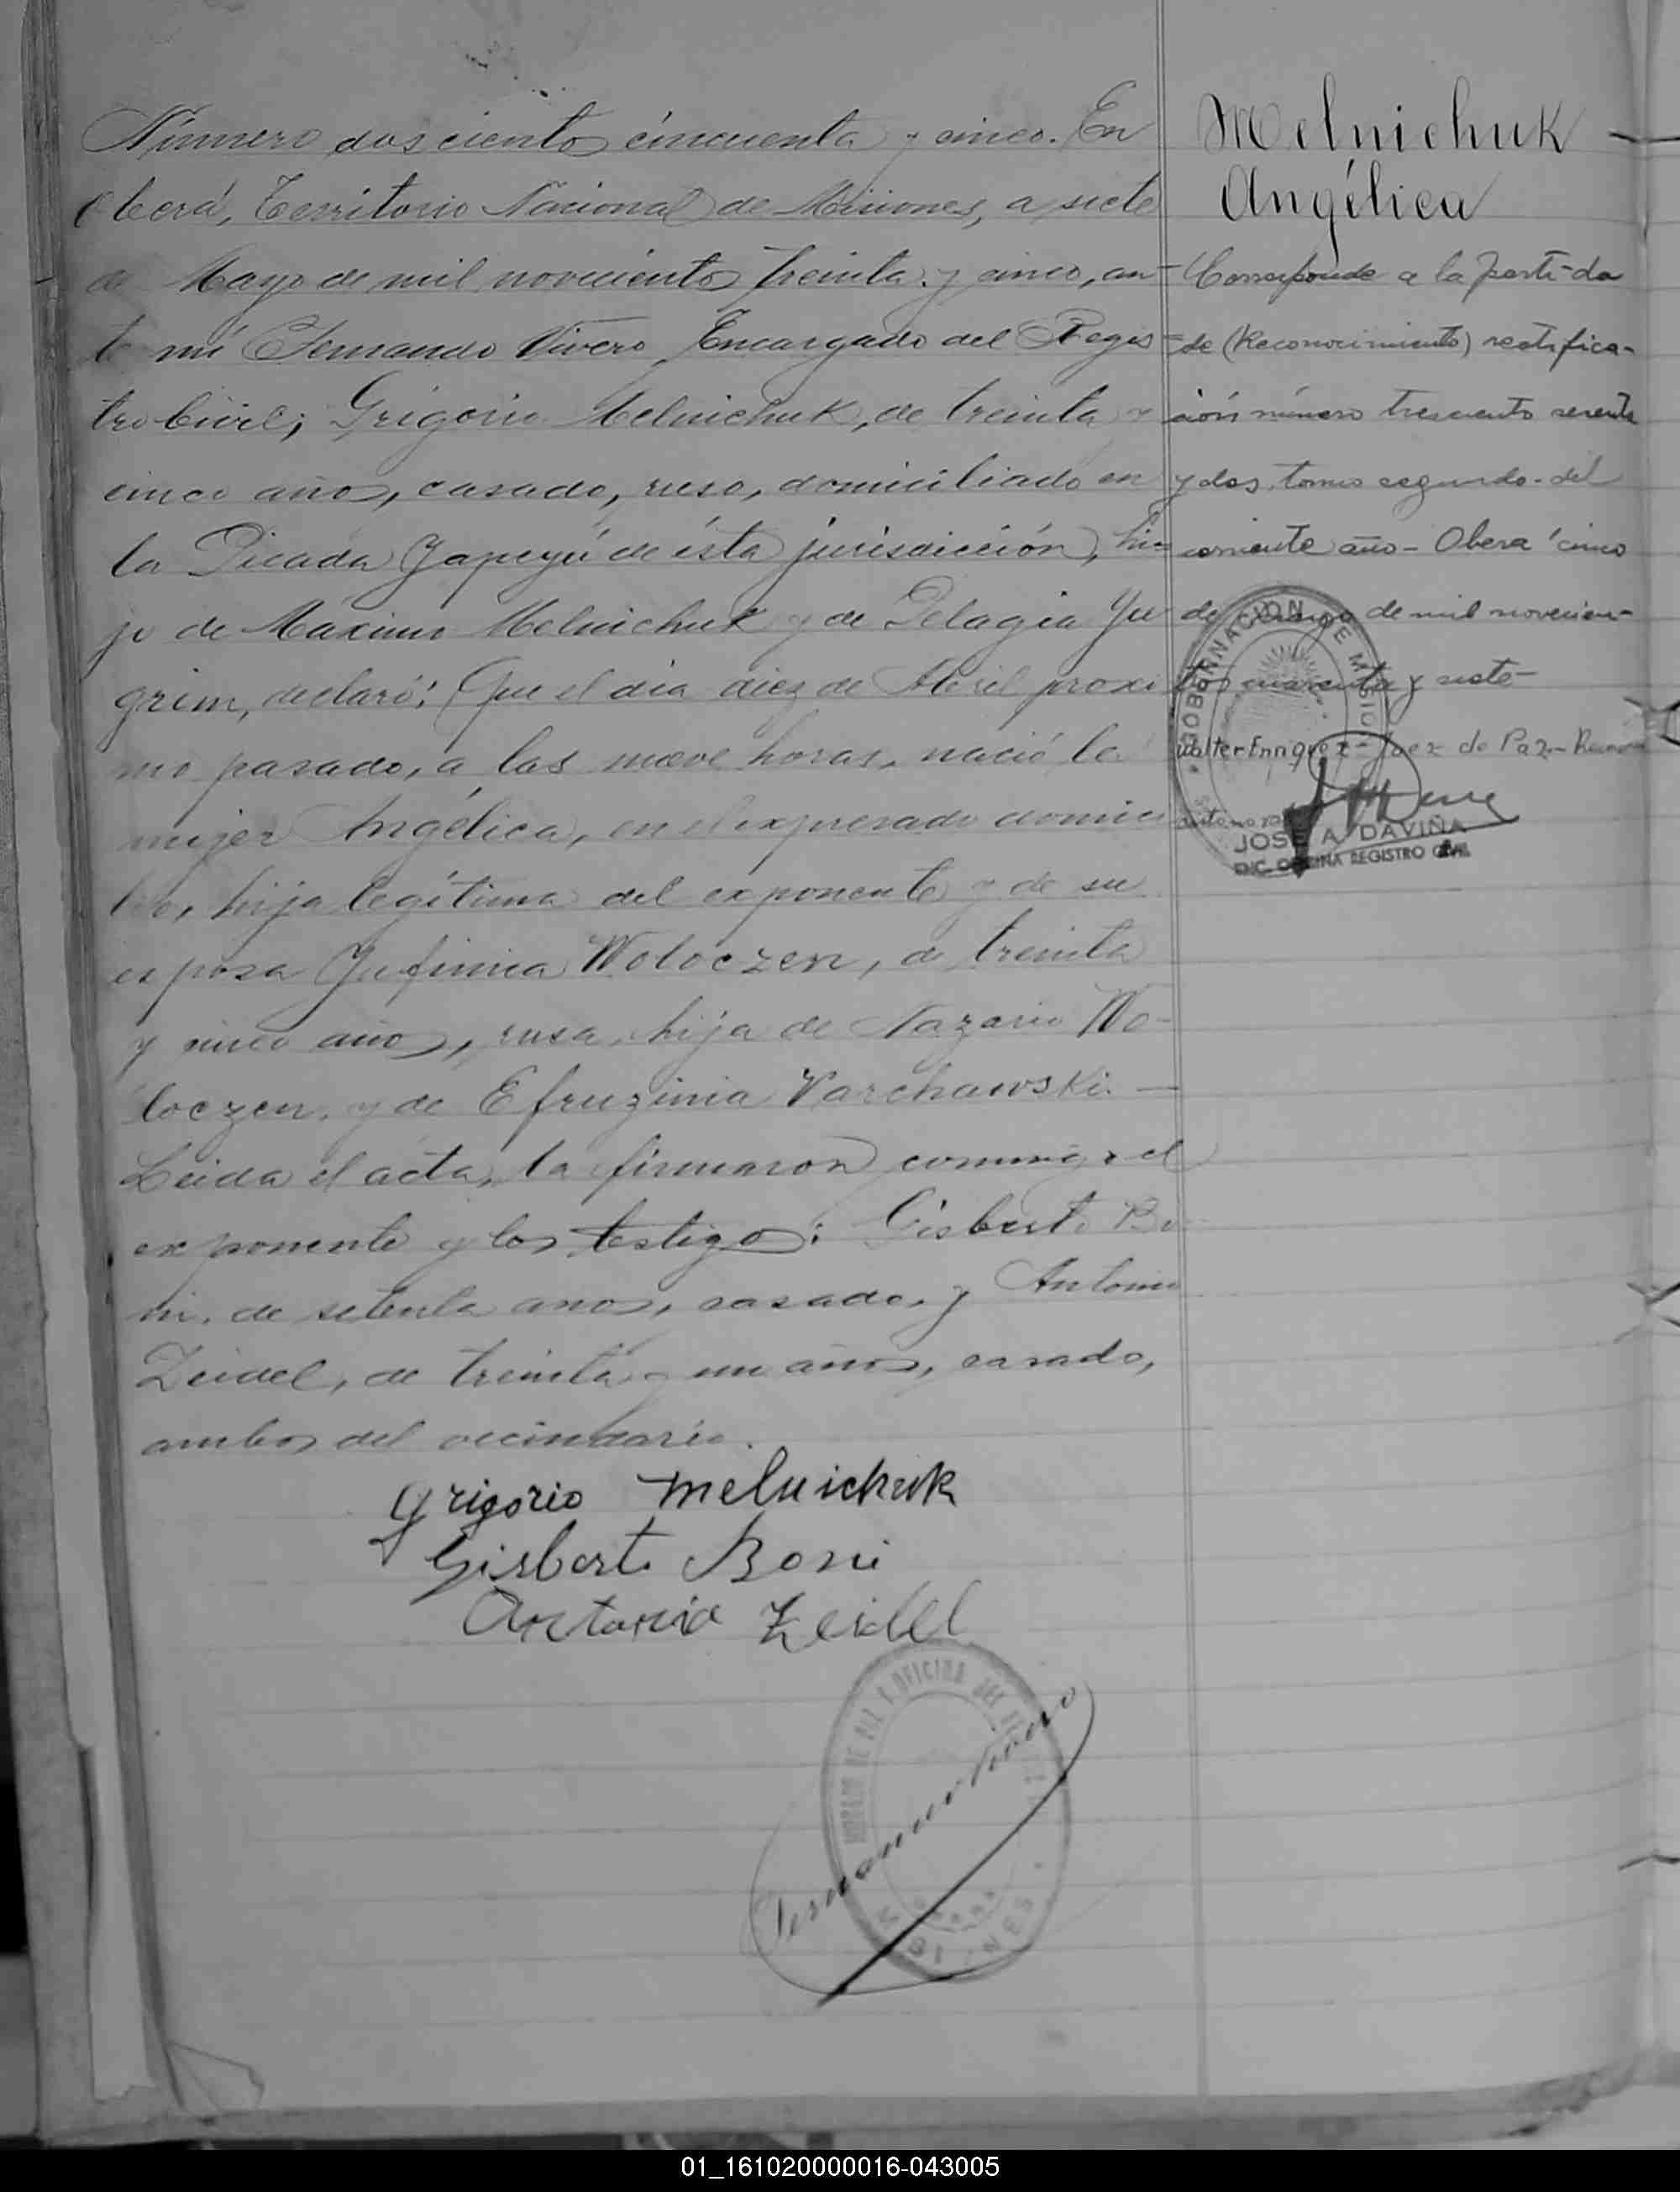 Número doscientos cincuenta y cinco. En
Oberá, Territorio Nacional de Misiones, a siete
de Mayo de mil novecientos treinta y cinco, an-
te mí Fernando Vivero, Encargado del Regis-
tro Civil; Grigorio Melnichuk, de treinta y
cinco años, casado, ruso, domiciliado en
la Picada Yapeyú de ésta jurisdicción, hi-
jo de Máximo Melnichuk y de Pelagia Yu
grim, declaró: Que el día diez de Abril próxi
mo pasado, a las nueve horas, nació la
mujer Angélica, en el expresado domici
lio, hija legítima del exponente y de su
esposa Yufimia Woloczen, de treinta
y cinco años, rusa, hija de Nazario Wo-
loczen, y de Efruzinia Varchawski. —
Leída el acta, la firmaron conmigo el
exponente y los testigos: Gisberto Bo
ni, de setenta años, casado, y Antonio
Zeidel, de treinta y un años, casado,
ambos del vecindario.
Grigorio Melnichuk
Gisberto Boni
Antonio Zeidel
Fernando Vivero
Melnichuk
Angélica
Corresponde a la parti-da
de (Reconocimiento) rectifica-
ción número trescientos sesenta
y dos tomo segundo del
corriente año - Oberá cinco
de de mil novecien-
tos cuarenta y siete -
Walter Enriquez - Juez de Paz -
GOBERNACION DE MISIONES
JOSE A. DAVIÑA
ENC. OFICINA REGISTRO CIVIL
JUZGADO DE PAZ Y OFICINA DEL
01_161020000016-043005